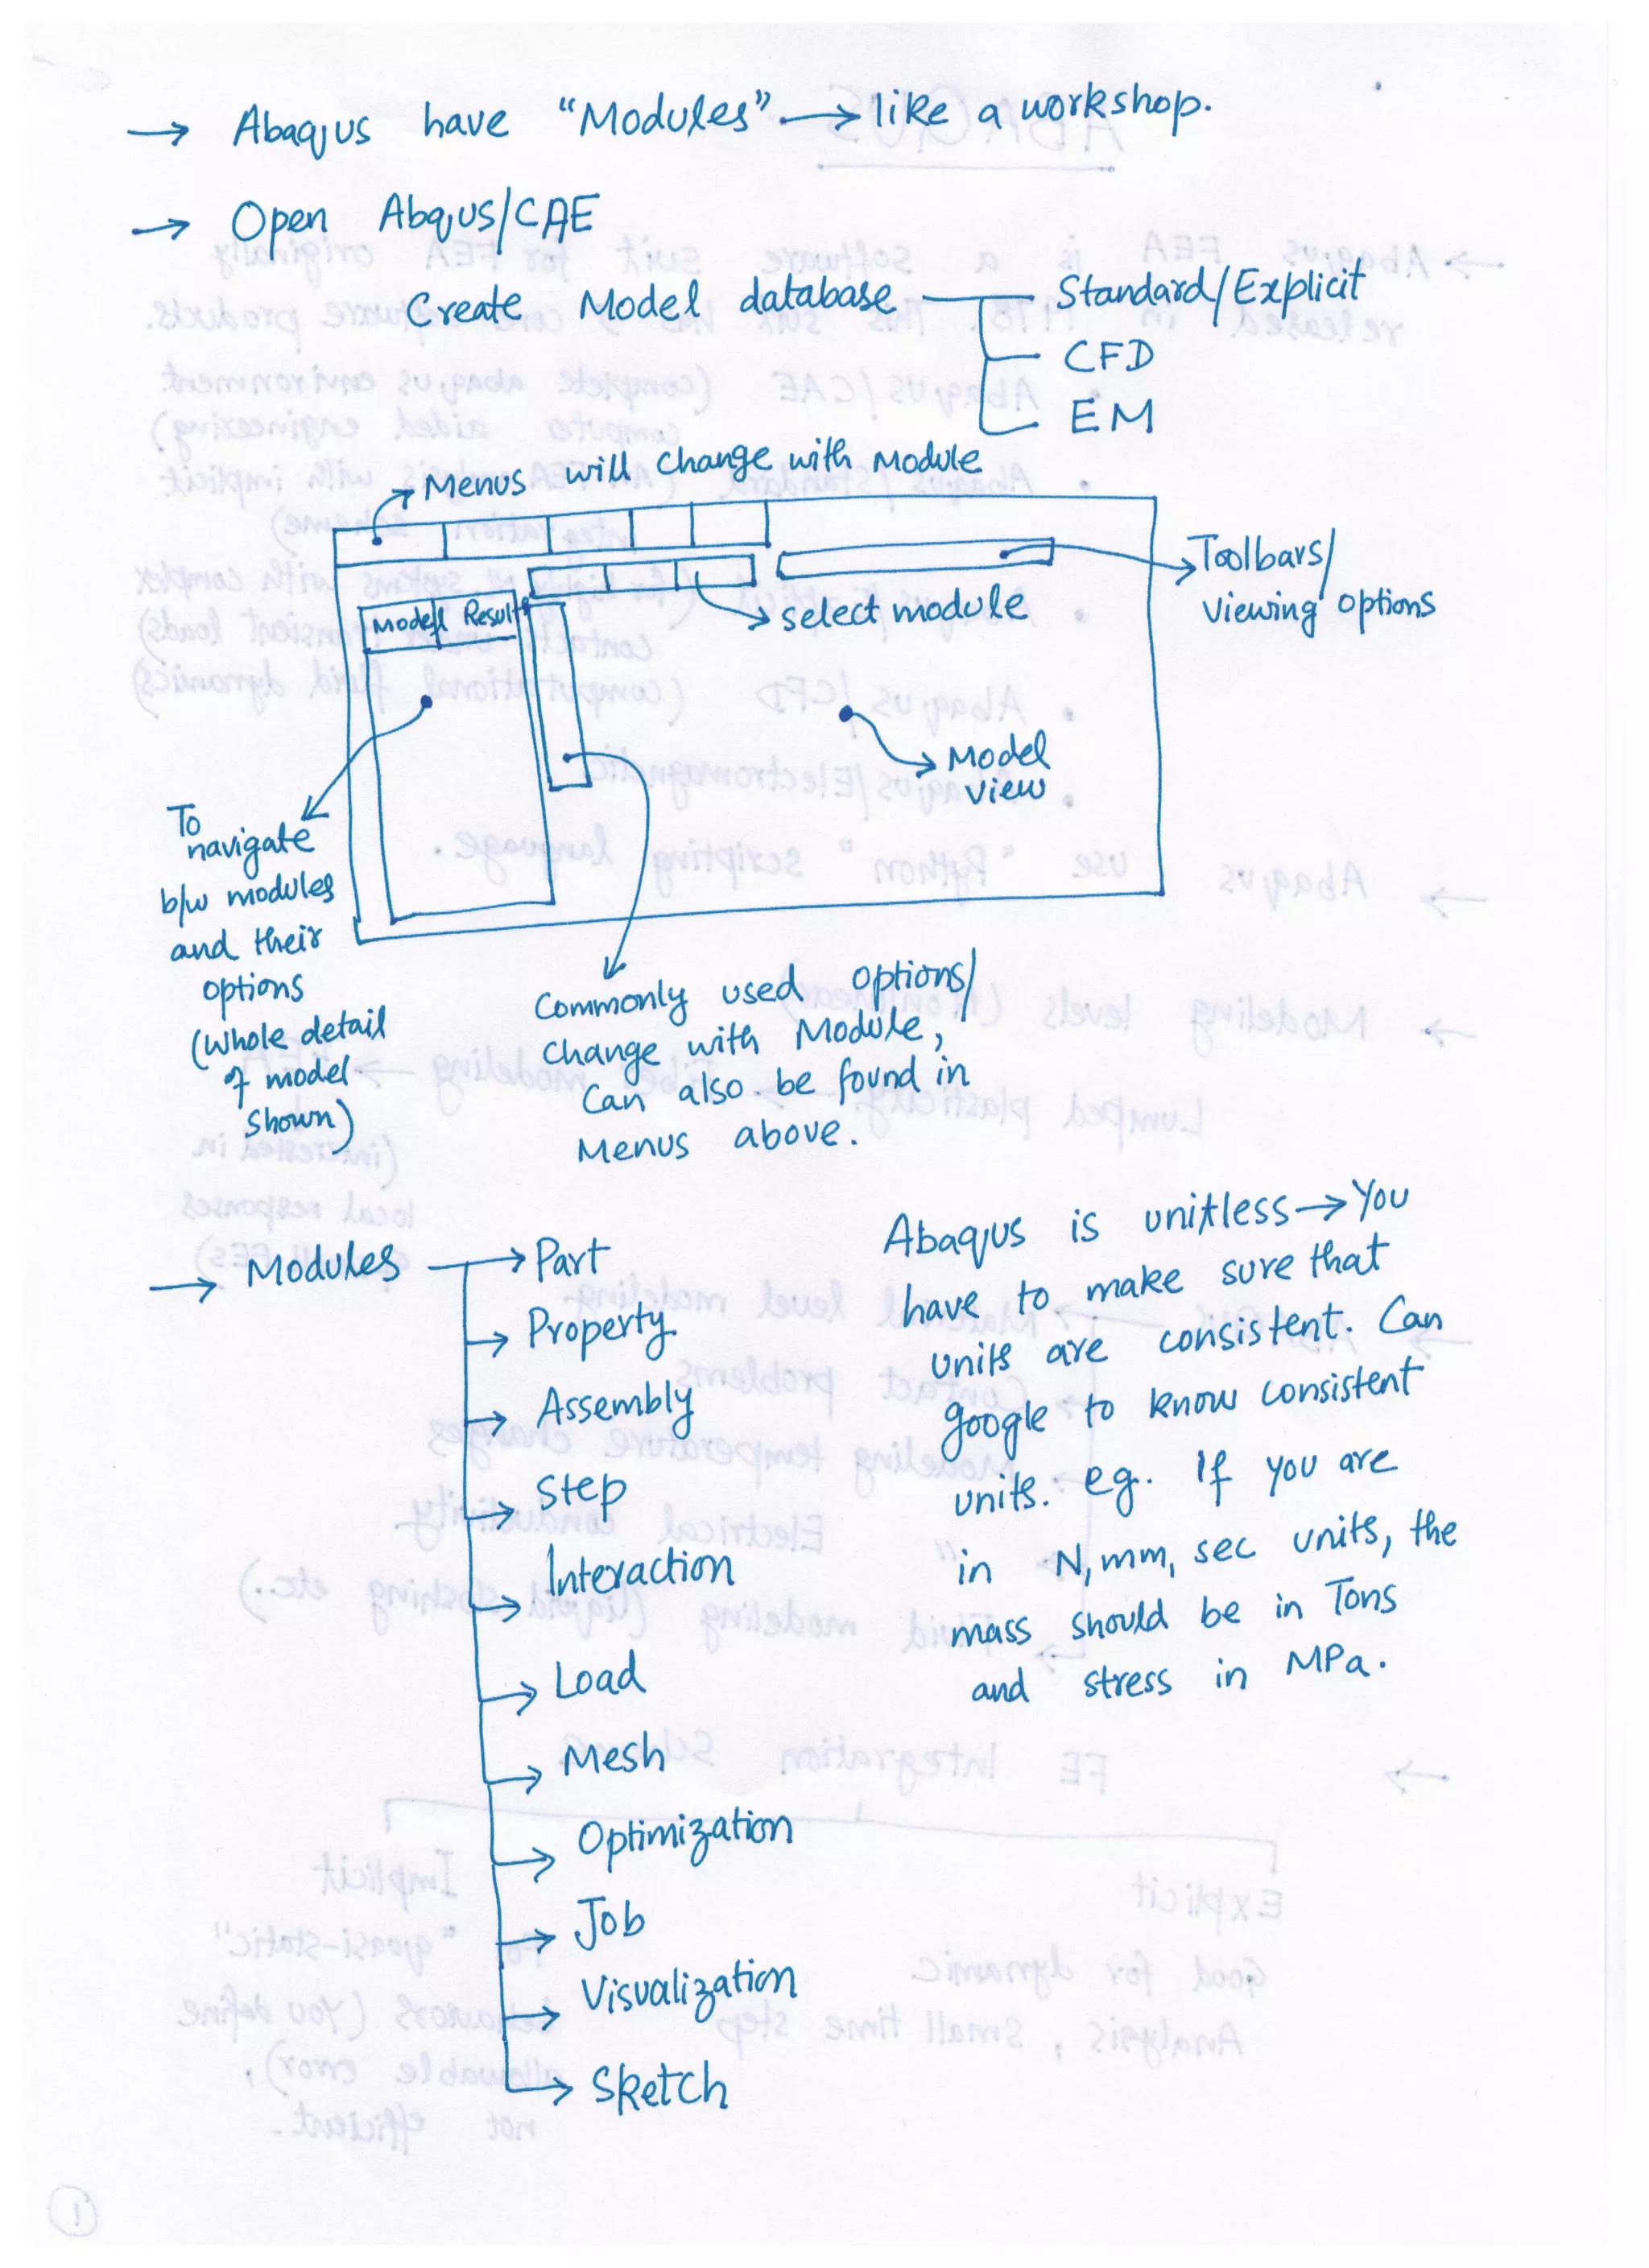 → Abaqus have "Modules" → like a workshop.
→ Open Abqus/CAE
Create Model database — Standard/Explicit
CFD
EM
Menus will change with Module
Toolbars/
viewing options
select module
Model Result
Model
view
To
navigate
b/w modules
and their
options
(whole detail
of model
shown)
Commonly used options/
change with Module,
Can also be found in
Menus above.
→ Modules → Part
→ Property
→ Assembly
→ Step
→ Interaction
→ Load
→ Mesh
→ Optimization
→ Job
→ Visualization
→ Sketch
Abaqus is unitless → You
have to make sure that
units are consistent. Can
google to know consistent
units. eg. If you are
in N, mm, sec units, the
mass should be in Tons
and stress in MPa.